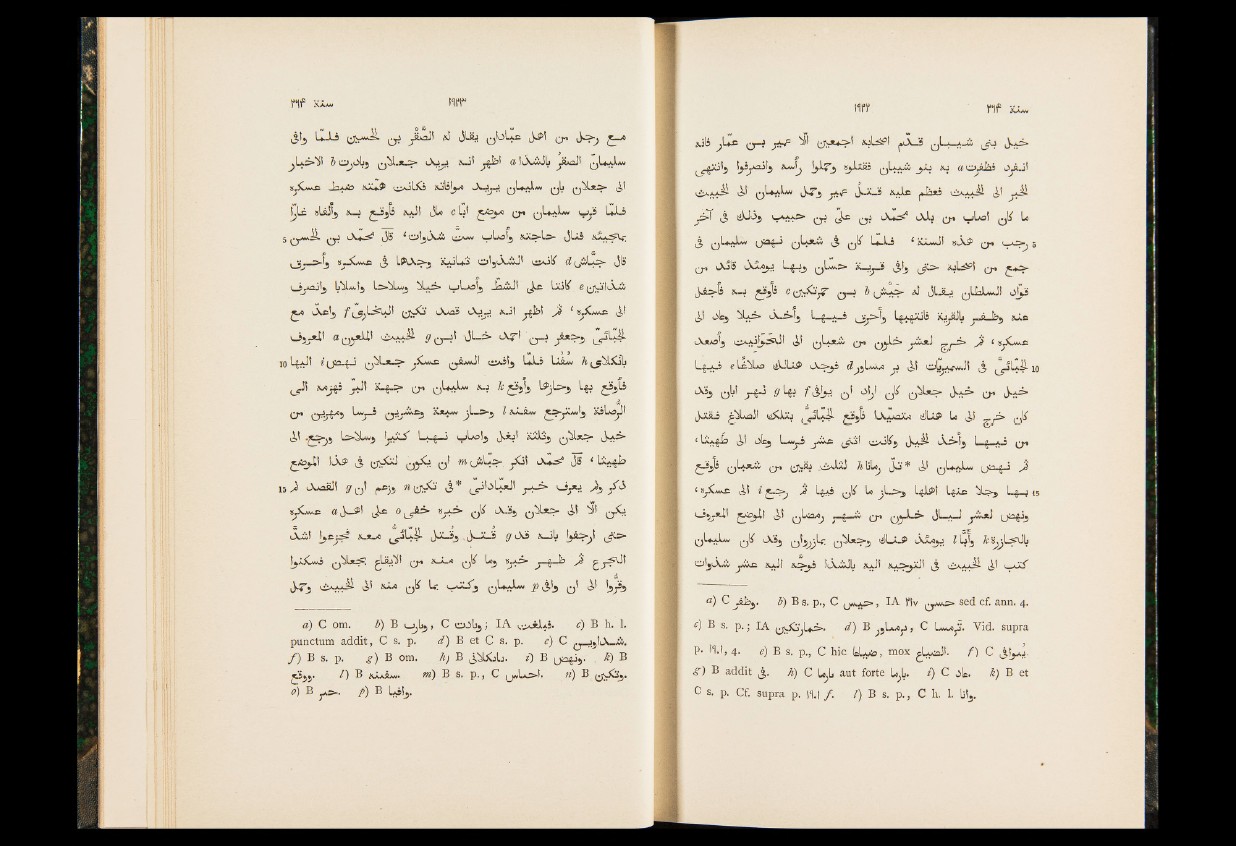 سنة ٢٦۴ ١٩٢٢
خيل بنى شيبان قدّم اصحابه اجمعين الّا عمير بن عمّار فانه
انفرد فظفرت a به بنو شيبان فقتلوه وحملوا رأسه وانصرفوا وانتهى
الخبر الى الخبيث فعظم عليه قتل عمير وحمل سليمان الى الخبيث
ما كان اصاب من بلد محمّد بن علىّ بن حبيب وذلك فى آخر
5 رجب من هذه السنة ، فلمّا كان فى شعبان نهض سليمان فى
جمع من اصحابه حتى وافى قرية حسّان وبها يومئذ قائد من
قوّاد السلطان يقال له جيش b بن حمرتكين c فأوقع به فأجفل
عنه وظفر بالقرية فانتهبها وأحرق فيها وأخذ خيلا وعاد الى
عسكره ، ثم خرج لعشر خلون من شعبان الى الحوانيت وأصعد
10 الجبّائىّ فى السميريّات الى بر مساور d فوجد هنالك صلاغًا e فيها
خيل من خيل جعلان كان اراد ان يوافى f بها g نهر ابان وقد
كان خرج الى ما هناك متصيّدا فأوقع الجبّائىّ بتلك الصلاغ فقتل
من فيها وأخذ الخيل وكانت اثنى عشر فرسا وعاد الى طهيثا ،
ثم نهض سليمان الى *تلّ رمانا h لثلث بقين من شعبان فأوقع
15 بها وجلا عنها اهلها وحاز ما كان فيها ثم رجع i الى عسكره ،
ونهض لعشر ليال خلون من شهر رمضان الى الموضع المعروف
بالجازرة k وأبّا l يومئذ هناك وجعلان بمازروان وقد كان سليمان
كتب الى الخبيث فى التوجيه اليه بالشذا فوجّه اليه عشر شذوات
a) C وظفر. b) B s. p., C حسن, IA ٢١٧ حسن sed cf. ann. 4.
c) B s. p.; IA خمارتكين. d) B برمساور, C ترمسا. Vid. supra
p. ١٩٠١, 4. e) B s. p., C hic ضياعا, mox الضياع. f) C يوافى.
g) B addit فى. h) C بارما aut forte يارما. i) C عاد. k) B et
C s. p. Cf. supra p. ١٩٠١ f. l) B s. p., C h. l. وانا.
١٩٢٣ سنة ٢٦۴
مع رجل من اهل عبّادان يقال له الصَّقْر بن الحسين فلمّا وافى
سليمان الصقر بالشذا a اظهر انه يريد جعلان وبادرت b الاخبار
الى جعلان بان سليمان يريد موافاته فكانت همّته ضبط عسكره
فلمّا قرب سليمان من موضع ابّا c مال اليه فأوقع به وألفاه غارًّا
5 بمجيئه فنال حاجته وأصاب ستّ شذوات ، قال محمّد بن الحسن
قال جبّاش d كانت الشذوات ثمانية وجدها فى عسكره وأحرق
شذاتين e كانتا على الشطّ وأصاب خيلا وسلاحا واسلابا وانصرف
الى عسكره ، ثم اظهر انه يريد قصد تكين البخارىّ f وأعدّ مع
الجبّائىّ وجعفر بن احمد خال ابن g الخبيث الملعون a المعروف
10 بانكلاى h سُفُنا فلمّا وافت السفن عسكر جعلان نهض i اليها
فأوقع بها وحازها وأوقع k به سليمان من جهة البرّ فهزمه الى
الرُّصافة واسترجع سفنه l وحاز سبعة وعشرين فرسا ومهرين من
خيل جعلان وثلثة ابغل وأصاب نهبا كثيرا وسلاحا ورجع الى
طهيثا ، قال محمّد انكر جبّاش m ان يكون لتكين فى هذا الموضع
15 ذكر ولم يعرف خبر العبّادانىّ *فى تكين n وزعم ان g القصد لم
يكن الّا الى جعلان وقد كان خبره خفى o على اهل a عسكره
حتى ارجفوا بانه قد g قُتل وقُتل الجبّائىّ معه فجزعوا اشدّ
الجزع ثم ظهر خبره وما كان منه من الايقاع بجعلان فسكنوا
وقرّوا الى ان وافى p سليمان وكتب بما كان منه الى الخبيث وحمل
a) C om. b) B وبارب, C وبادت; IA فبلغت. c) B h. l.
punctum addit, C s. p. d) B et C s. p. e) C شذاوين.
f) B s. p. g) B om. h) B بانكلاى. i) B ونهض. k) B
ووقع. l) B سفينه. m) B s. p., C احباس. n) B وتكين.
o) B خبر. p) B وافيا.